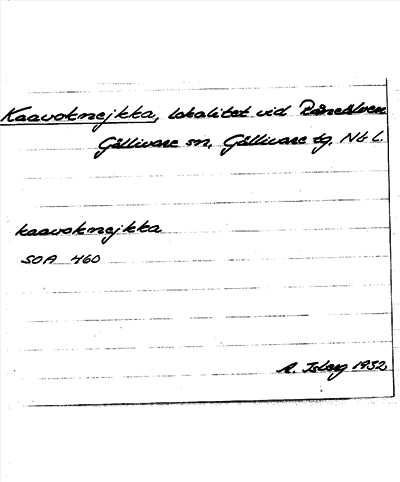 Kaavoknejkka, lokalitet vid Råneälven
Gällivare sn, Gällivare tg. Nb L.
kaavoknejkka
SOA 460
A. Isberg 1932